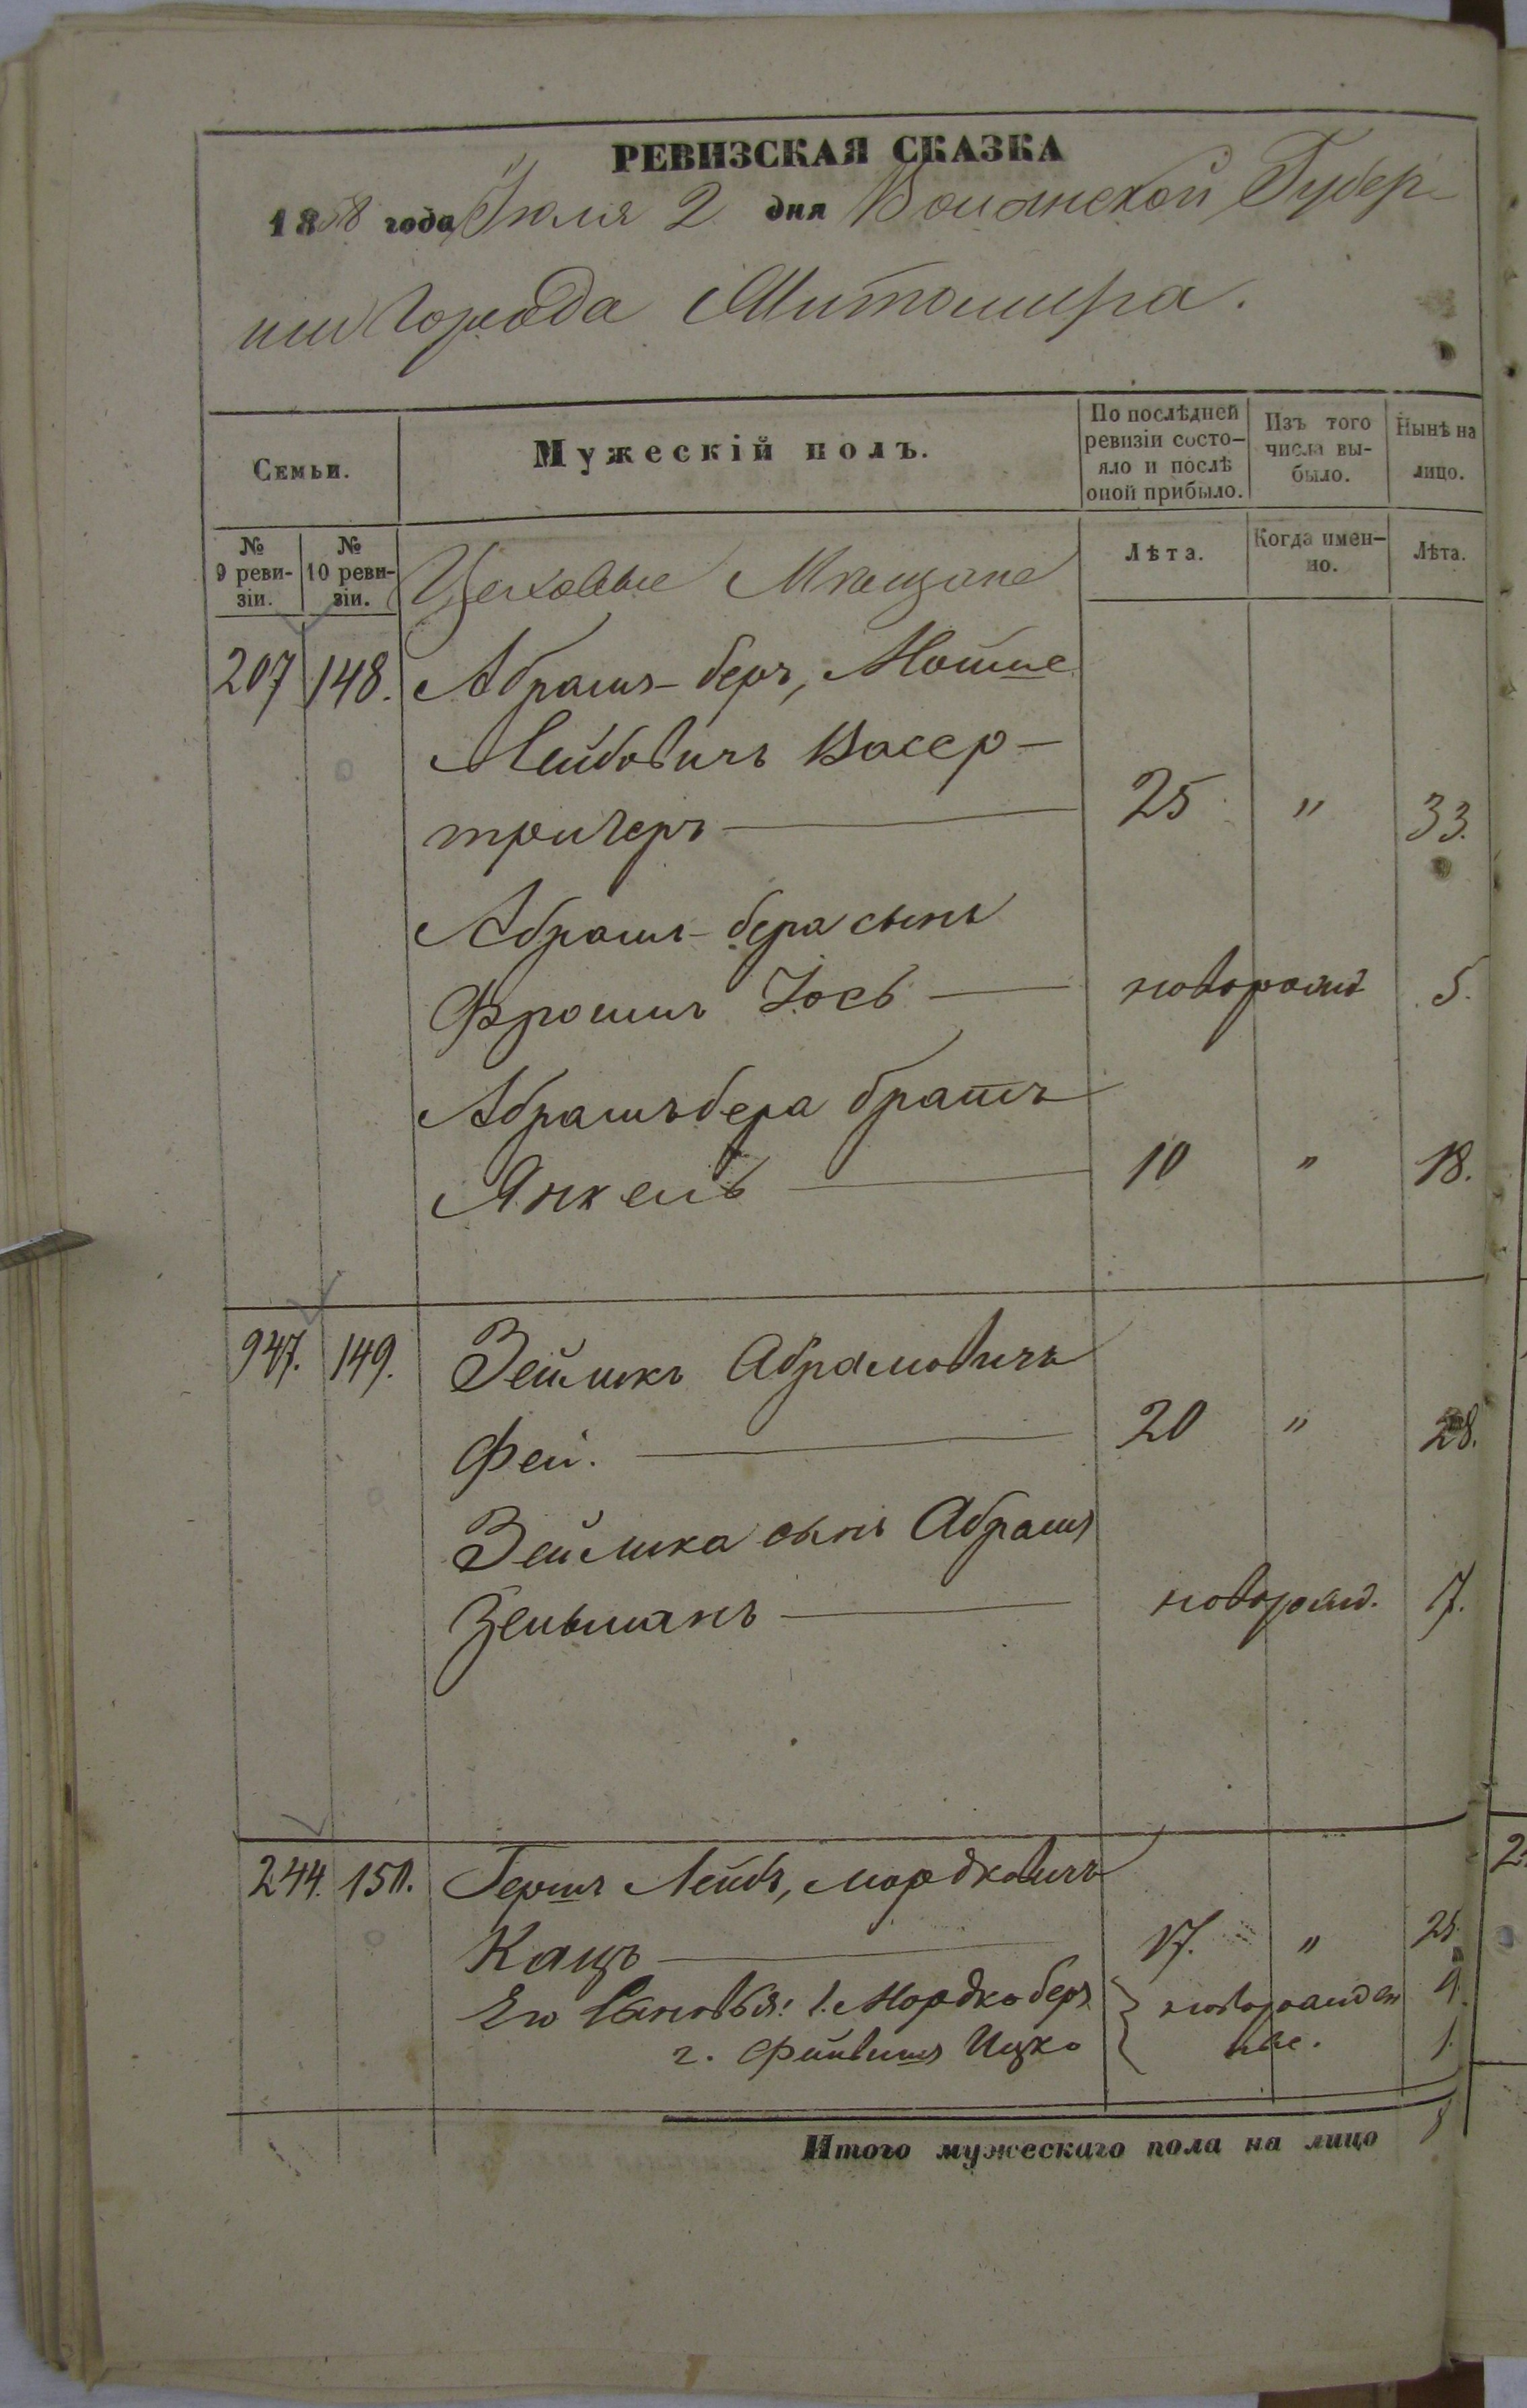 РЕВИЗСКАЯ СКАЗКА
1858 года Іюля 2 дня Волынской Губер-
ніи Города Житомира.
Семьи.
Мужескій полъ.
По послѣдней ревизіи состо-
яло и послѣ оной прибыло.
Изъ того числа вы-
было.
Нынѣ на лицо.
№ 9 реви-
зіи.
№ 10 реви-
зіи.
Цеховые Мещане
Лѣта.
Когда имен-
но.
Лѣта.
207 148. Абрамъ-беръ, Мошке
Лейбовичъ Васер-
тригеръ 25 " 33.
Абрамъ-бера сынъ
Фроимъ Іось новорожд 5.
Абрамъ бера братъ
Янкель 10 " 18.
947. 149. Зейликъ Абрамовичъ
Фей. 20 " 28.
Зейлика сынъ Абрамъ
Зельманъ новорожд. 7.
244. 150. Гершъ Лейбъ, Мордковичъ
Кацъ 17. " 25.
Его Сыновья: 1. Мордко беръ новорожден 4.
2. Файвишъ Ицко ные. 1.
Итого мужескаго пола на лицо 8